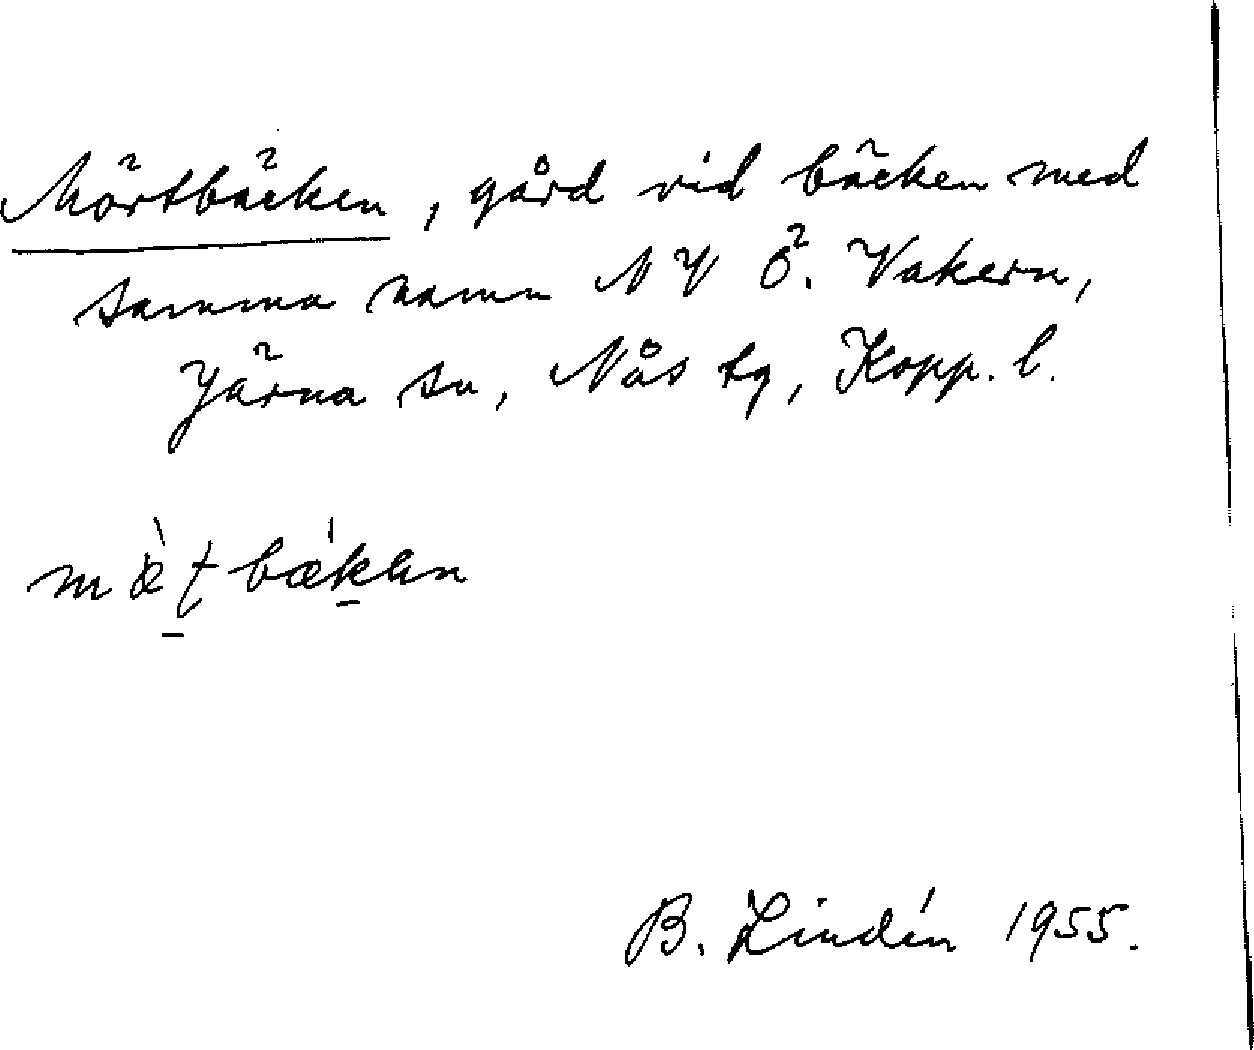 Mörtbäcken, gård vid bäcken med
samma namn NV Ö. Vakern,
Järna sn, Nås tg, Kopp. l.
B. Lindén 1955.